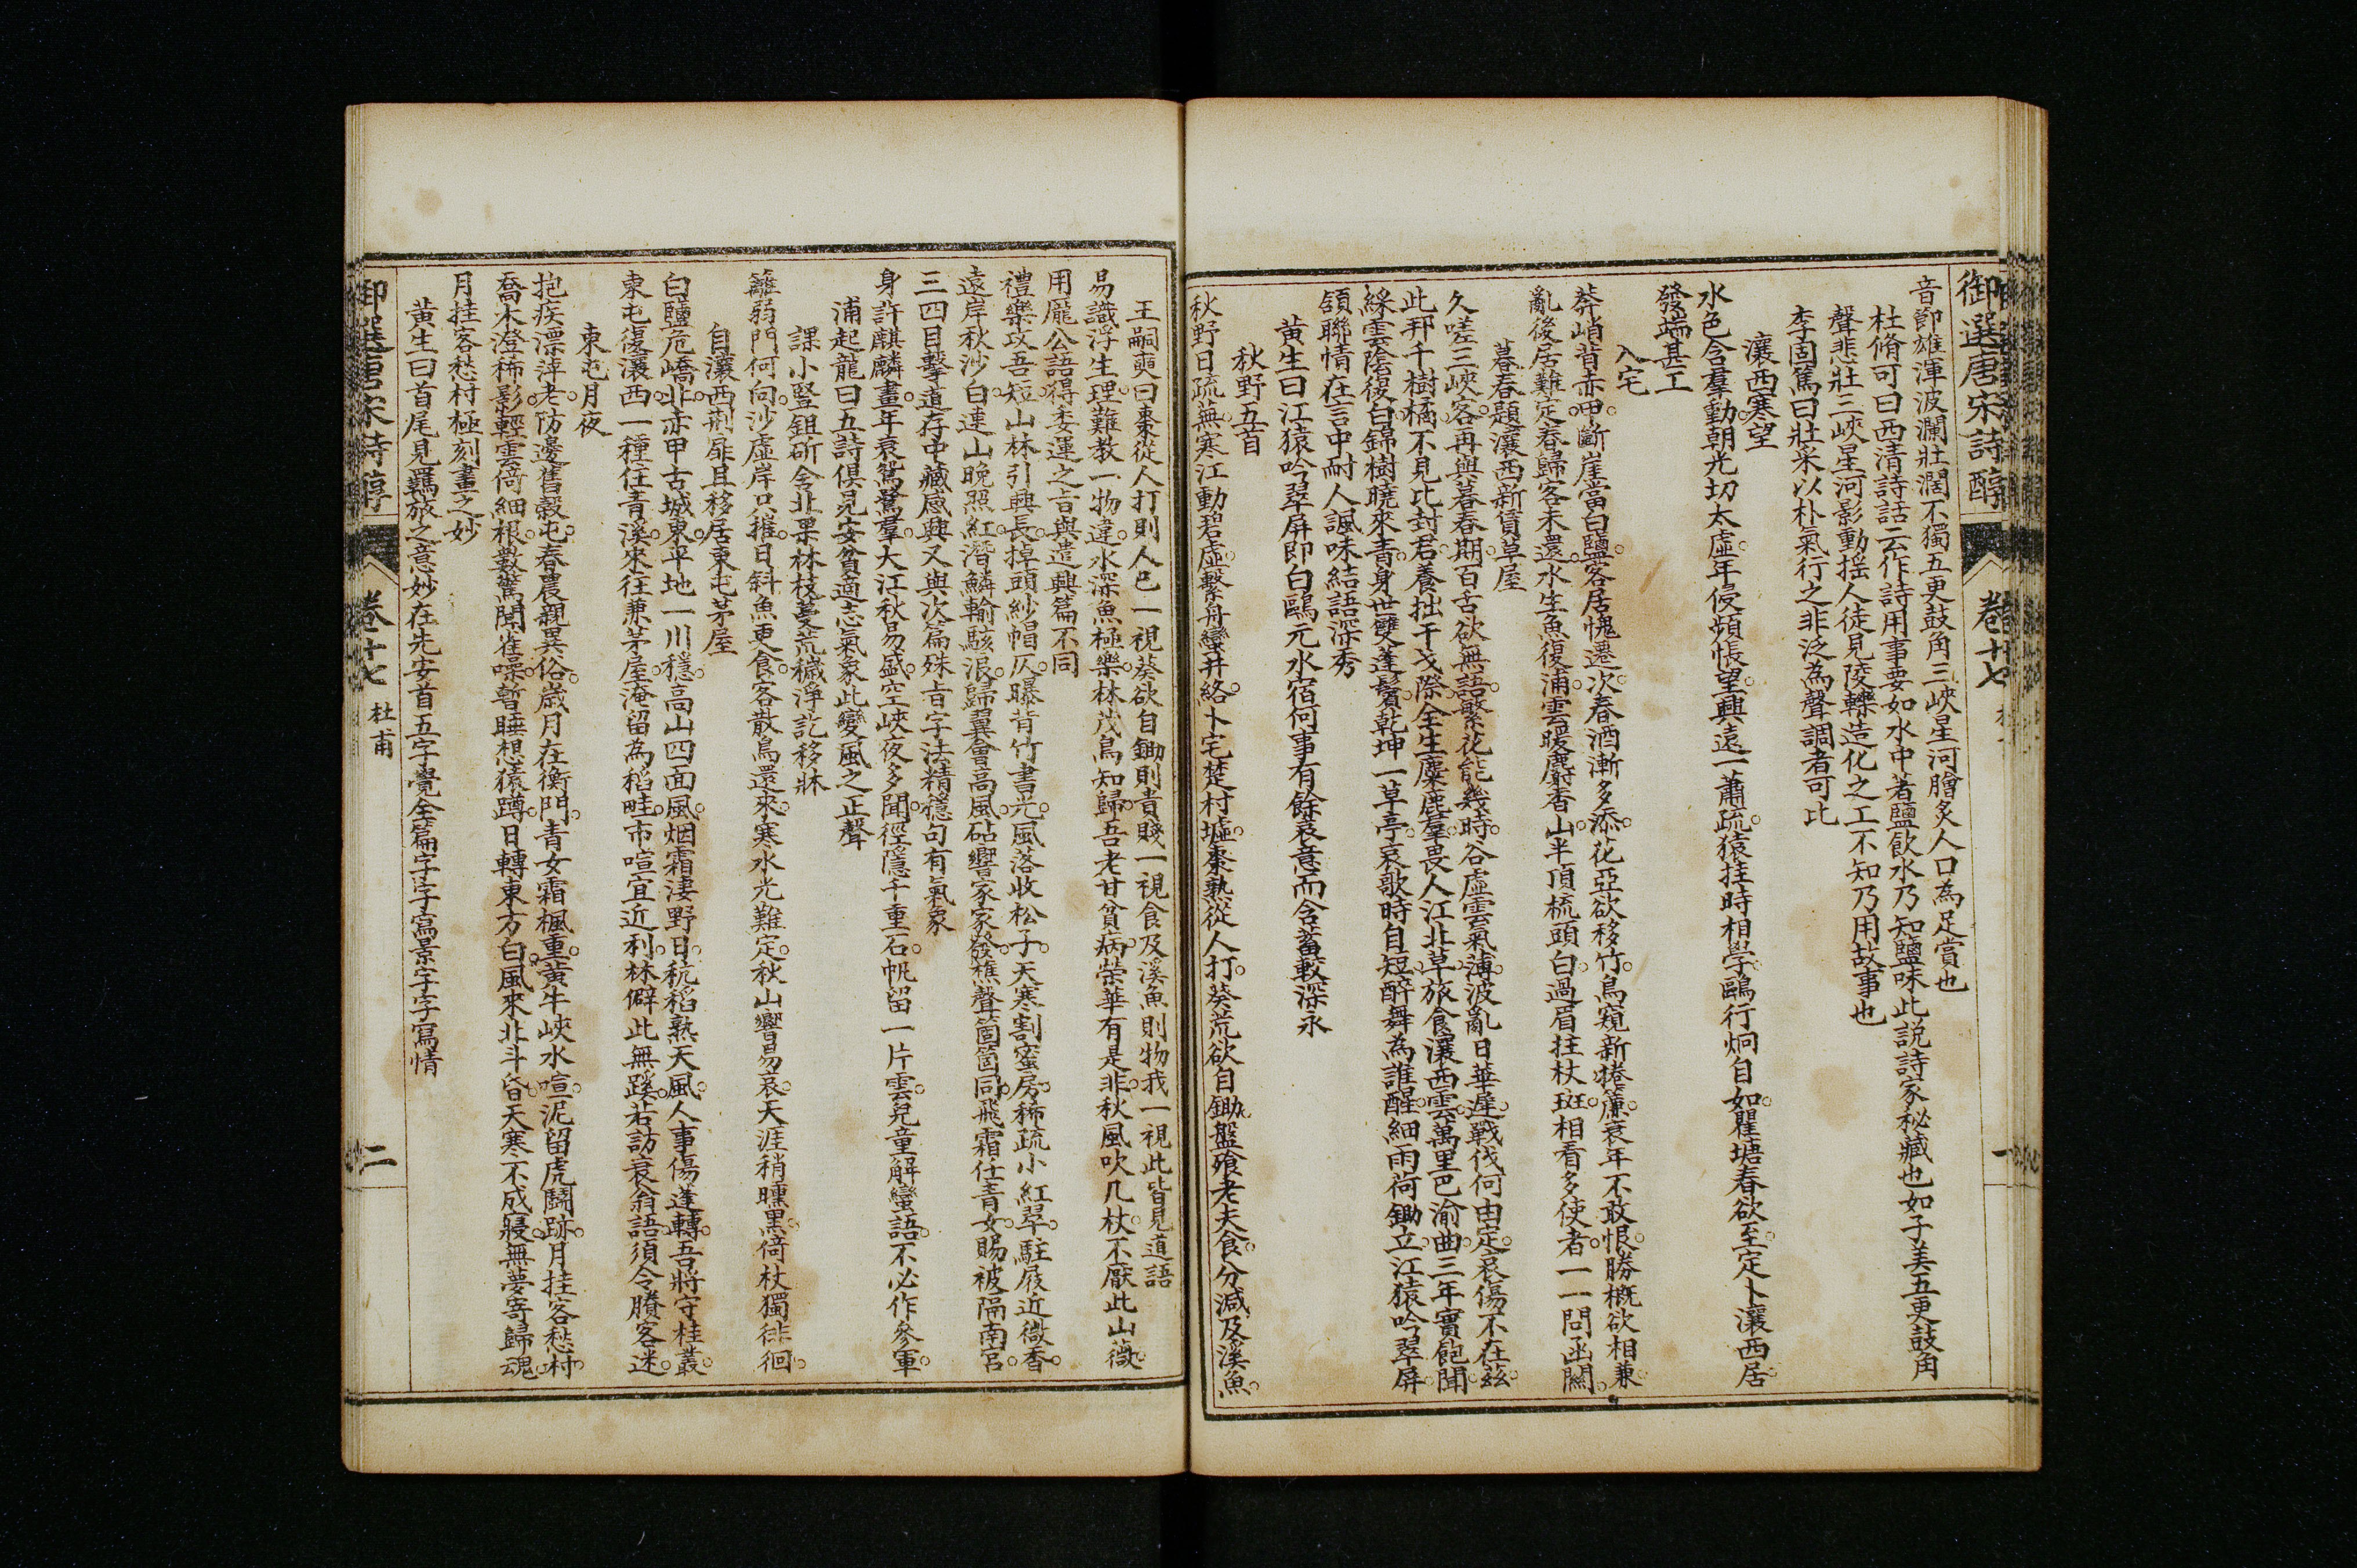 御選唐宋詩醇
卷十七
一
音節雄渾波瀾壯濶不獨五更鼓角三峽星河膾炙人口為足賞也
杜脩可曰西清詩話云作詩用事要如水中著鹽飲水乃知鹽味此説詩家秘藏也如子美五更鼓角
聲悲壯三峽星河影動揺人徒見陵轢造化之工不知乃用故事也
李固篤曰壯采以朴氣行之非泛為聲調者可比
瀼西寒望
水色含羣動朝光切太虛年侵頻悵望興遠一蕭疏猿挂時相學鷗行炯自如瞿塘春欲至定卜瀼西居
發端甚工
入宅
莽峭背赤甲斷崖當白鹽客居愧遷次春酒漸多添花亞欲移竹鳥窺新捲簾衰年不敢恨勝概欲相兼
亂後居難定春歸客未還水生魚復浦雲暖麝香山半頂梳頭白過眉拄杖斑相看多使者一一問函關
暮春題瀼西新賃草屋
久嗟三峽客再與暮春期百舌欲無語繁花能幾時谷虛雲氣薄波亂日華遲戰伐何由定哀傷不在茲
此邦千樹橘不見比封君養拙干戈際全生麋鹿羣畏人江北草旅食瀼西雲萬里巴渝曲三年實飽聞
綵雲陰復白錦樹曉來青身世雙蓬鬢乾坤一草亭哀歌時自短醉舞為誰醒細雨荷鋤立江猿吟翠屏
頷聯情在言中耐人諷味結語深秀
黃生曰江猿吟翠屏即白鷗元水宿何事有餘哀意而含蓄較深永
秋野五首
秋野日疏蕪寒江動碧虛繫舟蠻井絡卜宅楚村墟棗熟從人打葵荒欲自鋤盤飱老夫食分減及溪魚
王嗣奭曰棗從人打則人已一視葵欲自鋤則貴賤一視食及溪魚則物我一視此皆見道語
易識浮生理難教一物違水深魚極樂林茂鳥知歸吾老甘貧病榮華有是非秋風吹几杖不厭此山薇
用龐公語得委運之旨與遣興篇不同
禮樂攻吾短山林引興長掉頭紗帽仄曝背竹書光風落收松子天寒割蜜房稀疏小紅翠駐屐近微香
遠岸秋沙白連山晚照紅潛鱗輸駭浪歸翼會高風砧響家家發樵聲箇箇同飛霜任青女賜被隔南宮
三四目擊道存中藏感興又與次篇殊旨字法精穩句有氣象
身許麒麟畫年衰鴛鷺羣大江秋易盛空峽夜多聞徑隱千重石帆留一片雲兒童解蠻語不必作參軍
浦起龍曰五詩俱見安貧適志氣象此變風之正聲
課小豎鉏斫舍北果林枝蔓荒穢淨訖移牀
籬弱門何向沙虛岸只摧日斜魚更食客散鳥還來寒水光難定秋山響易哀天涯稍曛黑倚杖獨徘徊
自瀼西荊扉且移居東屯茅屋
白鹽危嶠北赤甲古城東平地一川穩高山四面風烟霜淒野日秔稻熟天風人事傷蓬轉吾將守桂叢
東屯復瀼西一種住青溪來往兼茅屋淹留為稻畦市喧宜近利林僻此無蹊若訪衰翁語須令賸客迷
東屯月夜
抱疾漂萍老防邊舊穀屯春農親異俗歲月在衡門青女霜楓重黃牛峽水喧泥留虎鬬跡月挂客愁村
喬木澄稀影輕雲倚細根數驚聞雀噪暫睡想猿蹲日轉東方白風來北斗昏天寒不成寢無夢寄歸魂
月挂客愁村極刻畫之妙
黃生曰首尾見羈旅之意妙在先安首五字覺全篇字字寫景字字寫情
御選唐宋詩醇
卷十七
杜甫
二